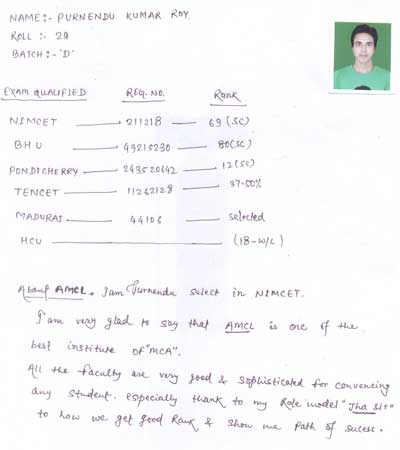 NAME:- PURNENDU KUMAR ROY.
ROLL :- 29
BATCH:- 'D'
EXAM QUALIFIED REG. NO. Rank
NIMCET 211218 69 (SC)
BHU 49215230 80(SC)
PONDICHERRY 243520642 12(SC)
TENCET 11262128 37.50%
MADURAI 44106 selected
HCU (18-W/L)
About AMCL. I am Purnendu select in NIMCET.
I am very glad to say that AMCL is one of the
best institute of "MCA".
All the faculty are very good & sophisticated for convencing
any student. especially thank to my Role model "Jha sir"
to how we get good Rank & show me path of sucess.